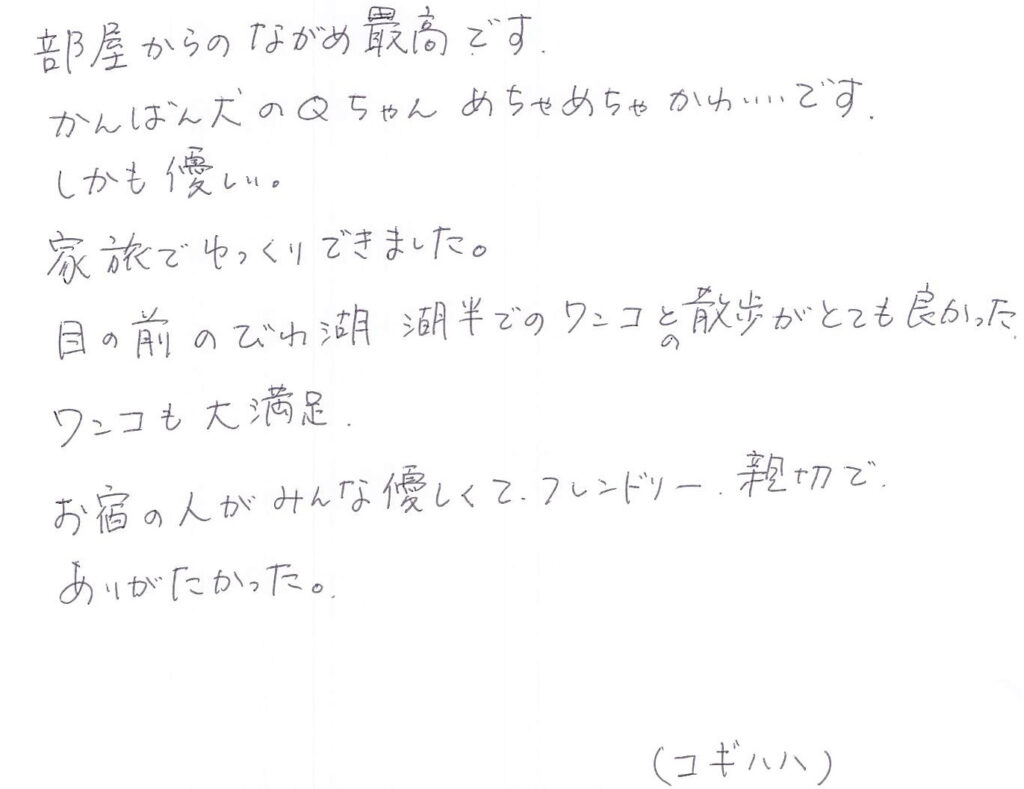 部屋からのながめ最高です.
かんばん犬のQちゃん めちゃめちゃかわいいです.
しかも優しい。
家旅でゆっくりできました。
目の前のびわ湖 湖半でのワンコとの散歩がとても良かった.
ワンコも大満足.
お宿の人がみんな優しくて.フレンドリー.親切で.
ありがたかった。
(コギハハ)